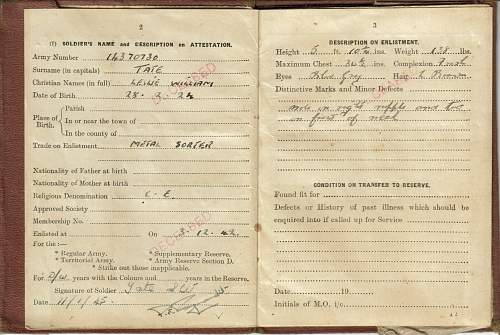 2
(I) SOLDIER'S NAME and DESCRIPTION on ATTESTATION.
Army Number 14370730
Surname (in capitals) TATE
Christian Names (in full) LESLIE WILLIAM
Date of Birth 28. 2. 24
Place of Birth. Parish
In or near the town of
In the county of
Trade on Enlistment METAL SORTER
Nationality of Father at birth
Nationality of Mother at birth
Religious Denomination C. E.
Approved Society
Membership No.
Enlisted at On 12. 42.
For the :—
* Regular Army. * Supplementary Reserve.
* Territorial Army. * Army Reserve Section D.
* Strike out those inapplicable.
For years with the Colours and years in the Reserve.
Signature of Soldier Tate
Date
DECEASED
DECEASED
3
DESCRIPTION ON ENLISTMENT.
Height 5 ft. ins. Weight lbs.
Maximum Chest ins. Complexion Fresh
Eyes Blue Grey Hair L. Brown
Distinctive Marks and Minor Defects
mole on right nipple and two
in front of neck
CONDITION ON TRANSFER TO RESERVE.
Found fit for
Defects or History of past illness which should be
enquired into if called up for Service
Date 19
Initials of M.O. i/c